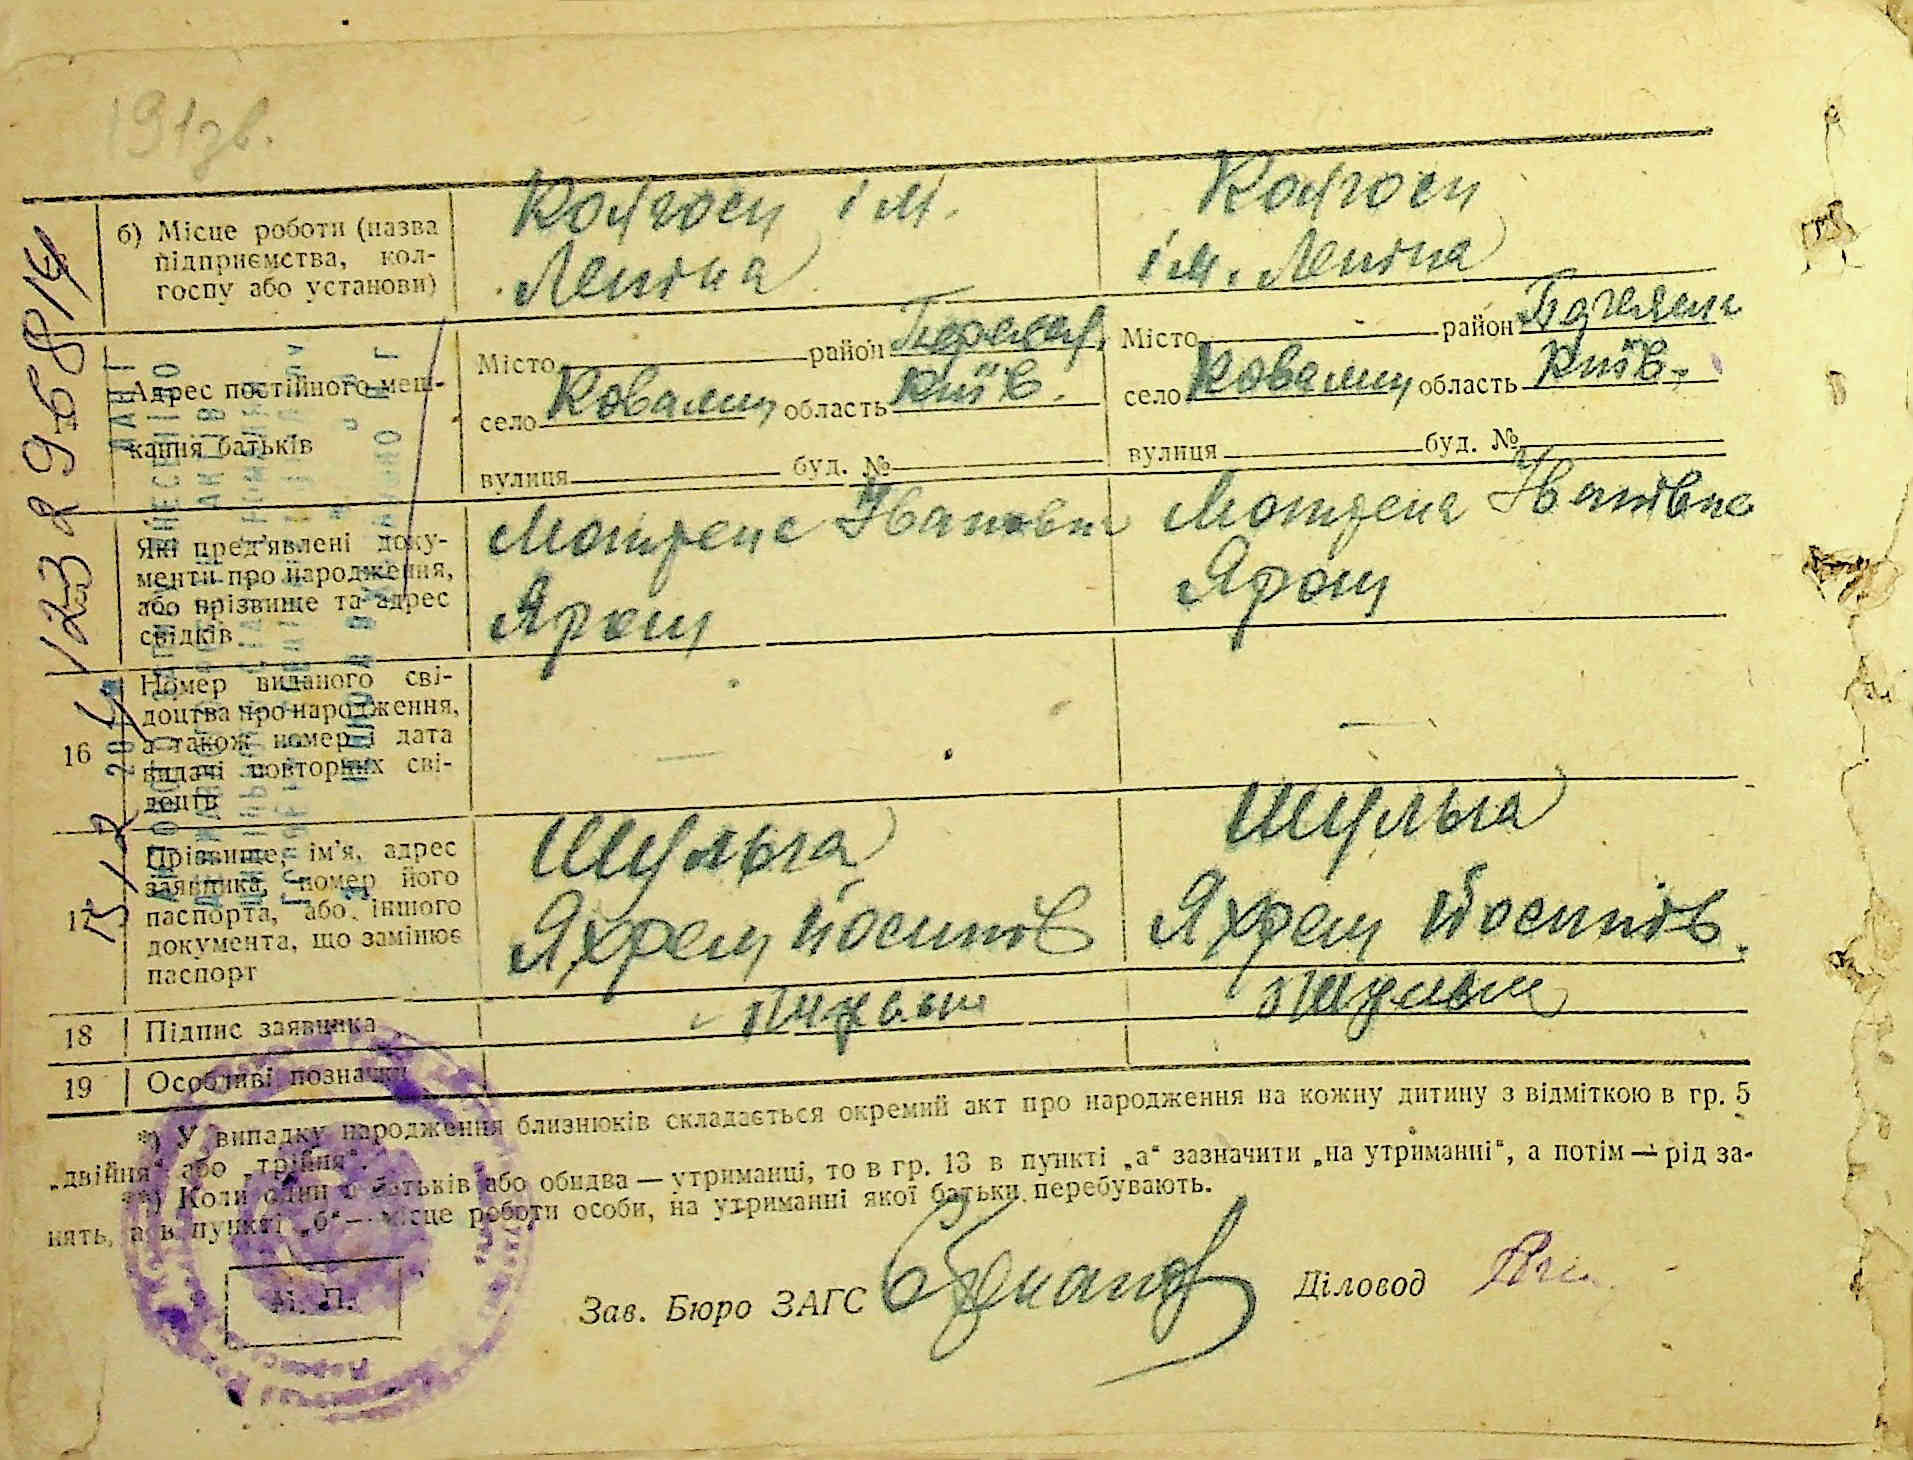 191зв.
б) Місце роботи (назва
підприємства, кол-
госпу або установи)
Колгосп ім.
Леніна
Колгосп
ім. Леніна
Адрес постійного меш-
кання батьків
Місто район
село Ковалин область Київ.
вулиця буд. №
Місто район
село Ковалин область Київ.
вулиця буд. №
Які пред'явлені доку-
менти про народження,
або прізвище та адрес
свідків
Мотрена Іванівна
Ярош
Мотрена Іванівна
Ярош
16
Номер виданого сві-
доцтва про народження,
а також номер і дата
видачі повторних сві-
доцтв
—
—
17
Прізвище, ім'я, адрес
заявника, номер його
паспорта, або іншого
документа, що замінює
паспорт
Шульга
Яхрем Йосипів
Шульга
Яхрем Йосипів.
18 Підпис заявника
19 Особливі позначки
*) У випадку народження близнюків складається окремий акт про народження на кожну дитину з відміткою в гр. 5
„двійня“ або „трійня“.
**) Коли один з батьків або обидва — утриманці, то в гр. 13 в пункті „а“ зазначити „на утриманні“, а потім — рід за-
нять, а в пункті „б“ — місце роботи особи, на утриманні якої батьки перебувають.
М. П.
Зав. Бюро ЗАГС
Діловод